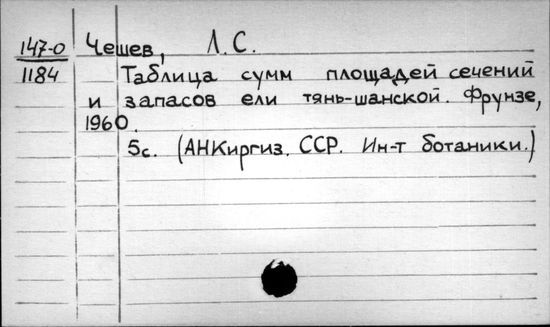 147-0 Чешев, Л. С.
1184 Таблица сумм площадей сечений
и запасов ели тянь-шанской. Фрунзе,
1960.
5с. (АН Киргиз. ССР. Ин-т ботаники.)